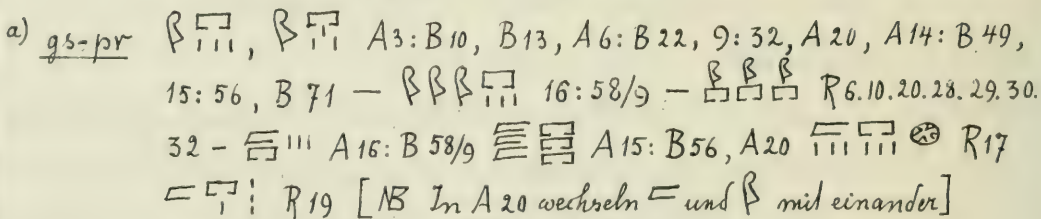 a) gs-pr , A3:B10, B13, A6:B22, 9:32, A20, A14:B49,
15:56, B71 — 16:58/9 — R6.10.20.28.29.30.
32 - A16:B58/9 A15:B56, A20 R17
R19 [NB In A20 wechseln und mit einander]